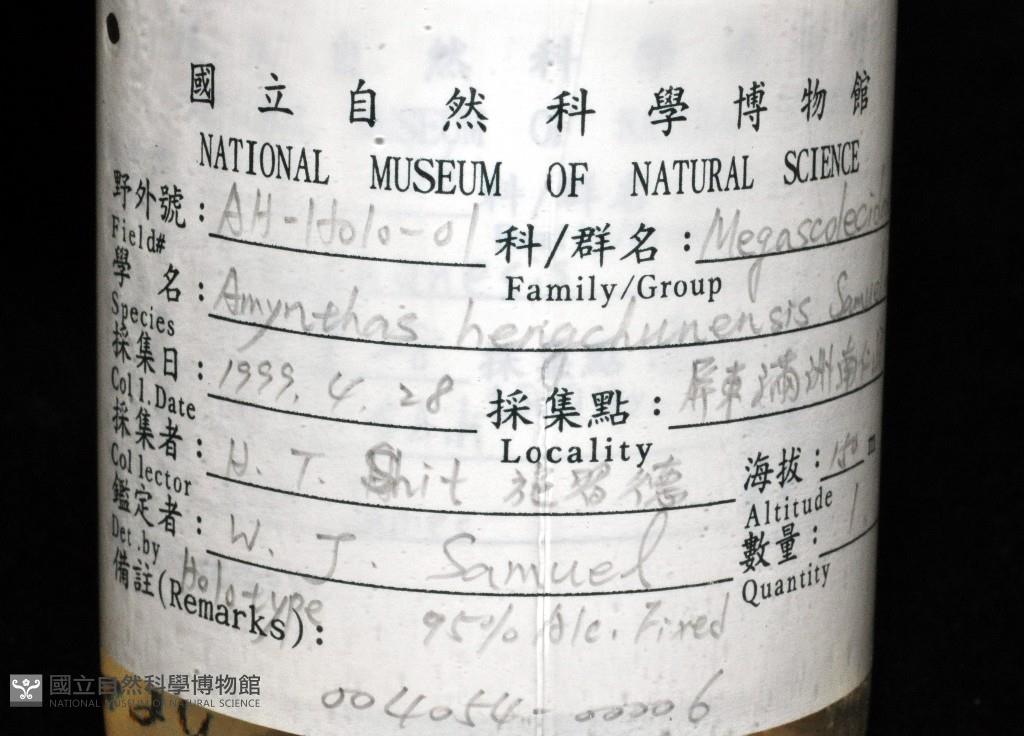 國立自然科學博物館
NATIONAL MUSEUM OF NATURAL SCIENCE
野外號: AH-Holo-01 科/群名: Megascolecid
Field# Family/Group
學 名: Amynthas hengchunensis Samuel
Species
採集日: 1999. 4. 28 採集點: 屏東滿洲南仁
Coll.Date Locality
採集者: H. T. Shit 施習德 海拔: 150 m
Collector Altitude
鑑定者: W. J. Samuel 數量: 1
Det.by Quantity
備註(Remarks): Holotype 95% Alc. Fixed
004054-00006
國立自然科學博物館
NATIONAL MUSEUM OF NATURAL SCIENCE